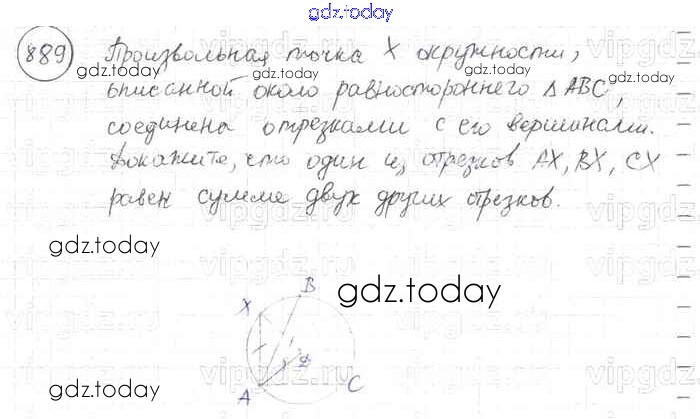 gdz.today
889 Произвольная точка X окружности,
gdz.today gdz.today gdz.today
описанной около равностороннего Δ ABC,
соединена отрезками с его вершинами.
Докажите, что один из отрезков AX, BX, CX
равен сумме двух других отрезков.
gdz.today
gdz.today
X B
A C
gdz.today
vipgdz.ru